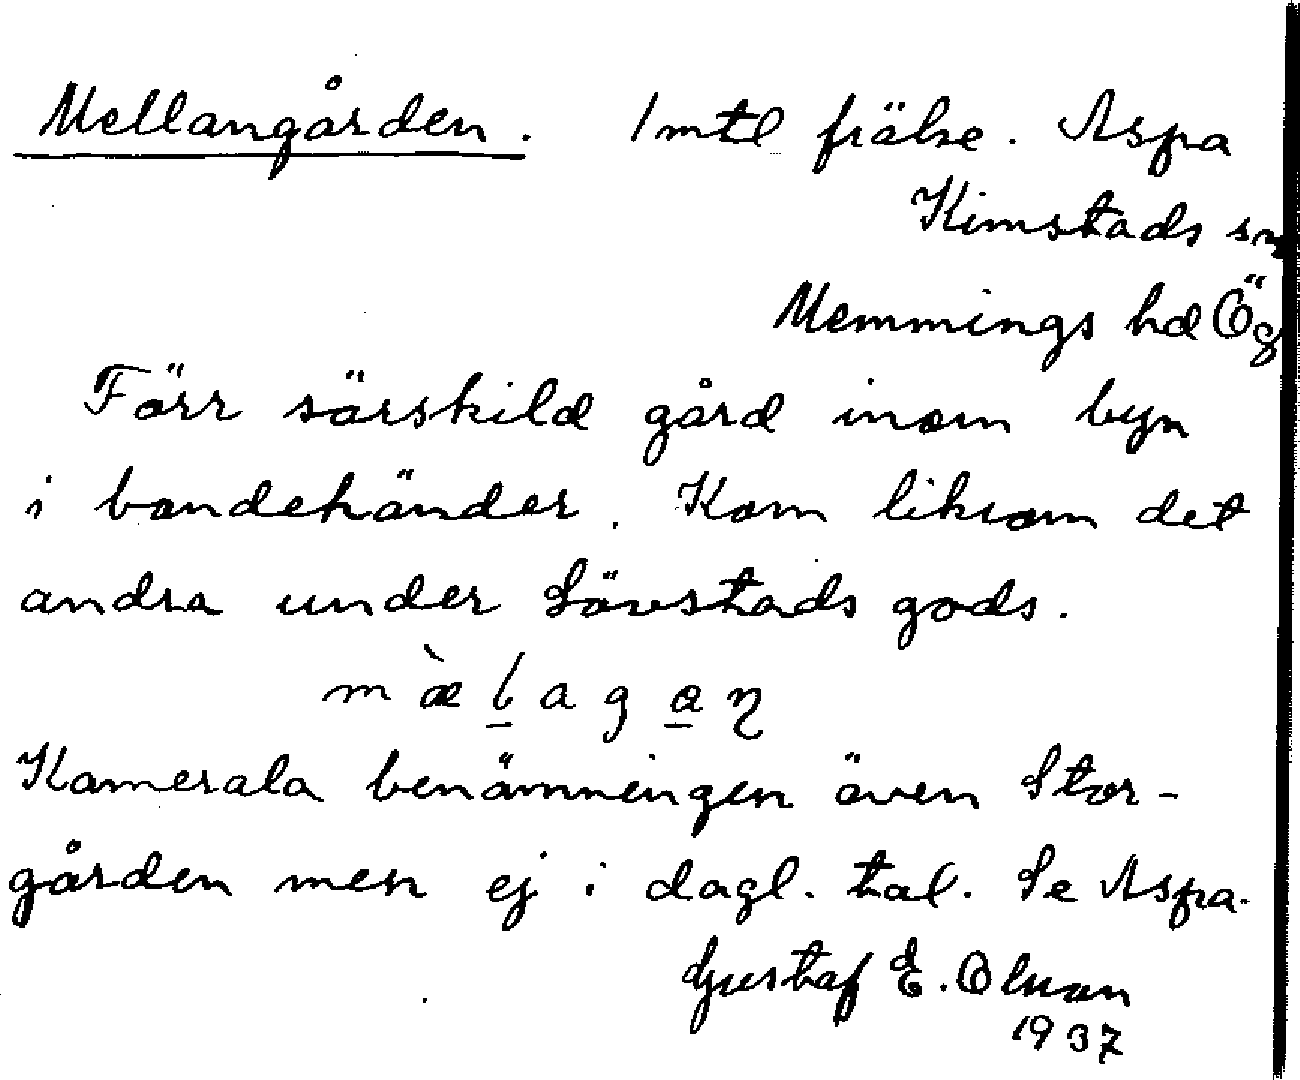 Mellangården. 1 mtl frälse. Aspa
Kimstads sn
Memmings hd Ög
Förr särskild gård inom byn
i bondehänder. Kom liksom det
andra under Lövstads gods.
m æ̀ l̲ a g a̲ ɳ
Kamerala benämningen även Stor-
gården men ej i dagl. tal. Se Aspa.
Gustaf E. Olsson
1937